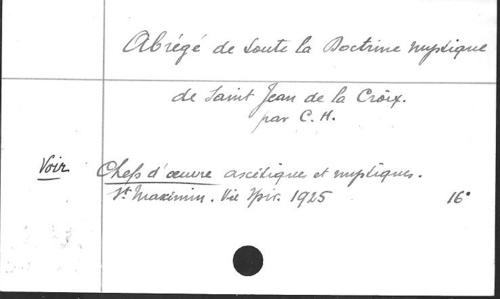 Abrégé de toute la Doctrine mystique
de Saint Jean de la Croix.
par C. H.
Voir Chefs d'œuvre ascétiques et mystiques.
St Maximin. Vie Spir. 1925 16°